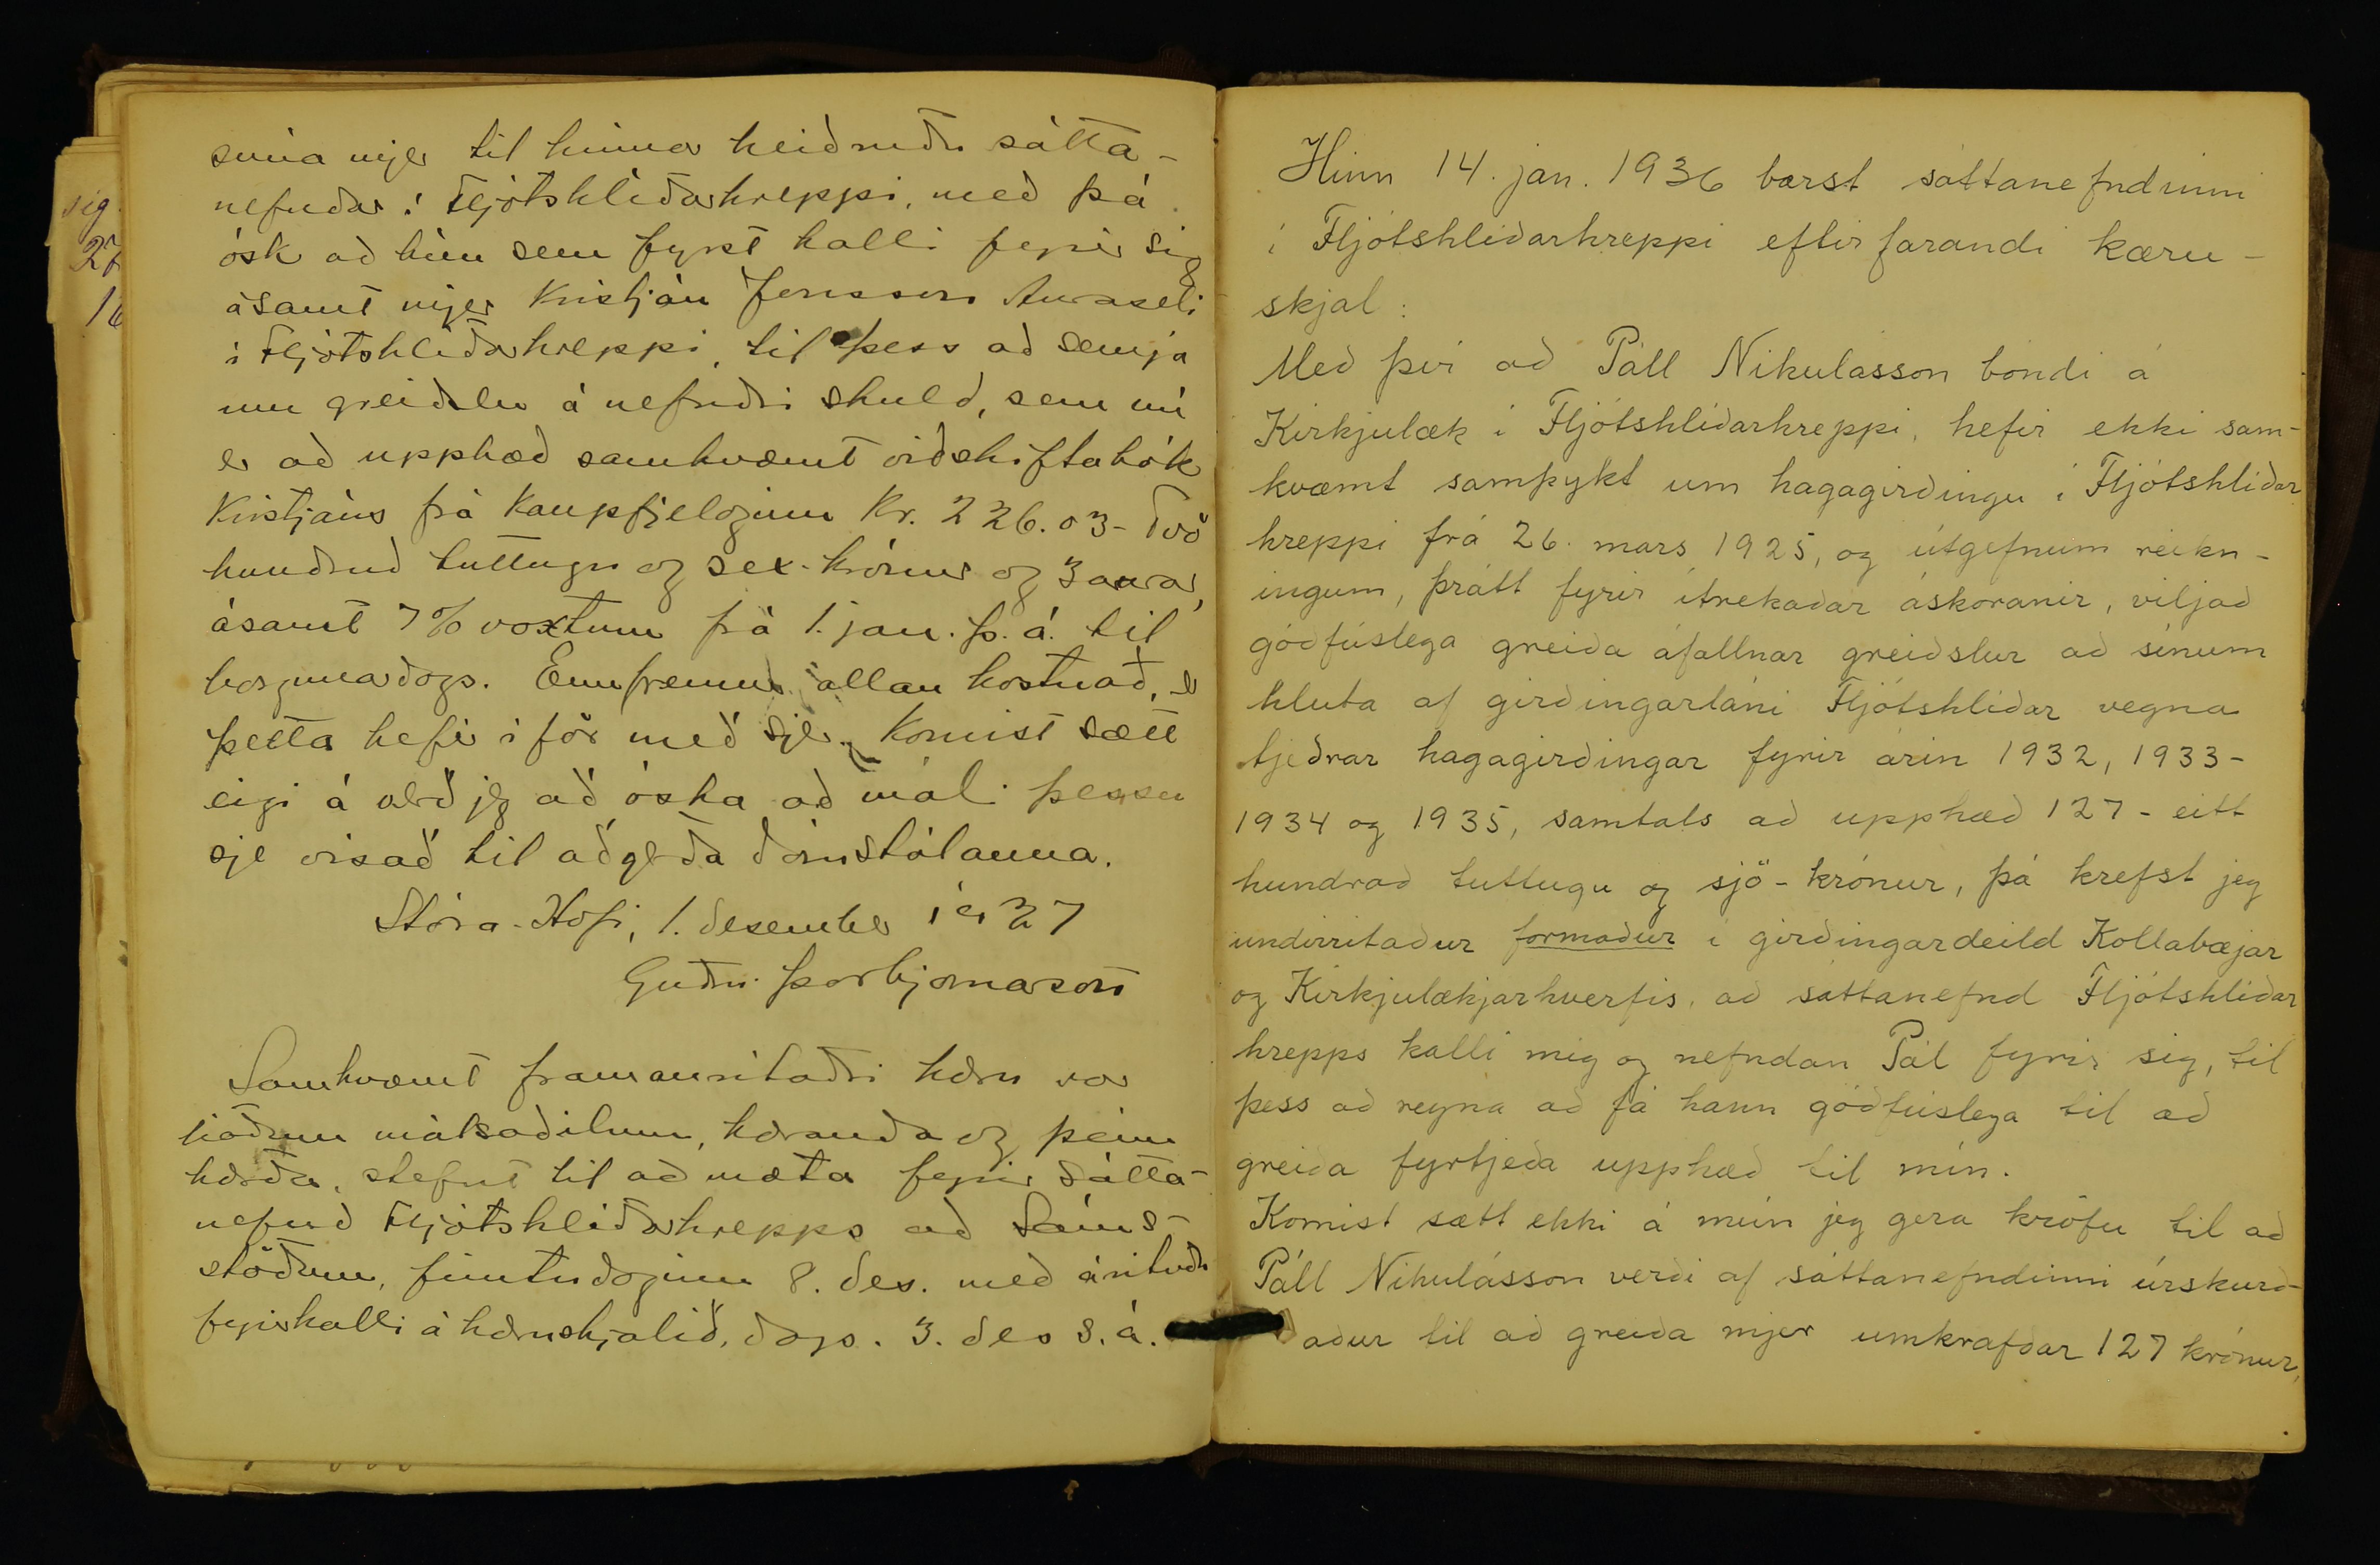 snúa mjer til hinnar heiðruðu sátta-
nefndar í Fljótshlíðarhreppi, með þá
ósk að hún sem fyrst kalli fyrir sig
ásamt mjer Kristján Jensson Auraseli
í Fljótshlíðarhreppi, til þess að semja
um greiðslu á nefndri skuld, sem nú
er að upphæð samkvæmt viðskiftabók
Kristjáns frá Kaupfjelaginu Kr. 226.03 - Tvö
hundruð tuttugu og sex - krónur og 3 aurar,
ásamt 7% vöxtum frá 1. jan. þ. á. til
borgunardags. Ennfremur allan kostnað, er
þetta hefir í för með sjer. Komist sætt
eigi á verð jeg að óska að máli þessu
sje vísað til aðgerða dómstólanna.
Stóra-Hofi, 1. desember 1927
Guðm. Þorbjarnarson
Samkvæmt framanritaðri kæru var
báðum málsaðilum, kæranda og þeim
kærða, stefnt til að mæta fyrir sátta-
nefnd Fljótshlíðarhrepps að Sáms-
stöðum, fimtudaginn 8. des. með árituðu
fyrirkalli á kæruskjalið, dags. 3. des s. á.
sig.
27
16
Hinn 14. jan. 1936 barst sáttanefndinni
í Fljótshlíðarhreppi eftirfarandi kæru-
skjal:
Með því að Páll Nikulásson bóndi á
Kirkjulæk í Fljótshlíðarhreppi, hefir ekki sam-
kvæmt samþykt um hagagirðingu í Fljótshlíðar
hreppi frá 26. mars 1925, og útgefnum reikn-
ingum, þrátt fyrir ítrekaðar áskoranir, viljað
góðfúslega greiða áfallnar greiðslur að sínum
hluta af girðingarláni Fljótshlíðar vegna
tjeðrar hagagirðingar fyrir árin 1932, 1933-
1934 og 1935, samtals að upphæð 127 - eitt
hundrað tuttugu og sjö - krónur, þá krefst jeg
undirritaður formaður í girðingardeild Kollabæjar
og Kirkjulækjarhverfis, að sáttanefnd Fljótshlíðar
hrepps kalli mig og nefndan Pál fyrir sig, til
þess að reyna að fá hann góðfúslega til að
greiða fyrtjeða upphæð til mín.
Komist sætt ekki á mun jeg gera kröfu til að
Páll Nikulásson verði af sáttanefndinni úrskurð-
aður til að greiða mjer umkrafðar 127 krónur,